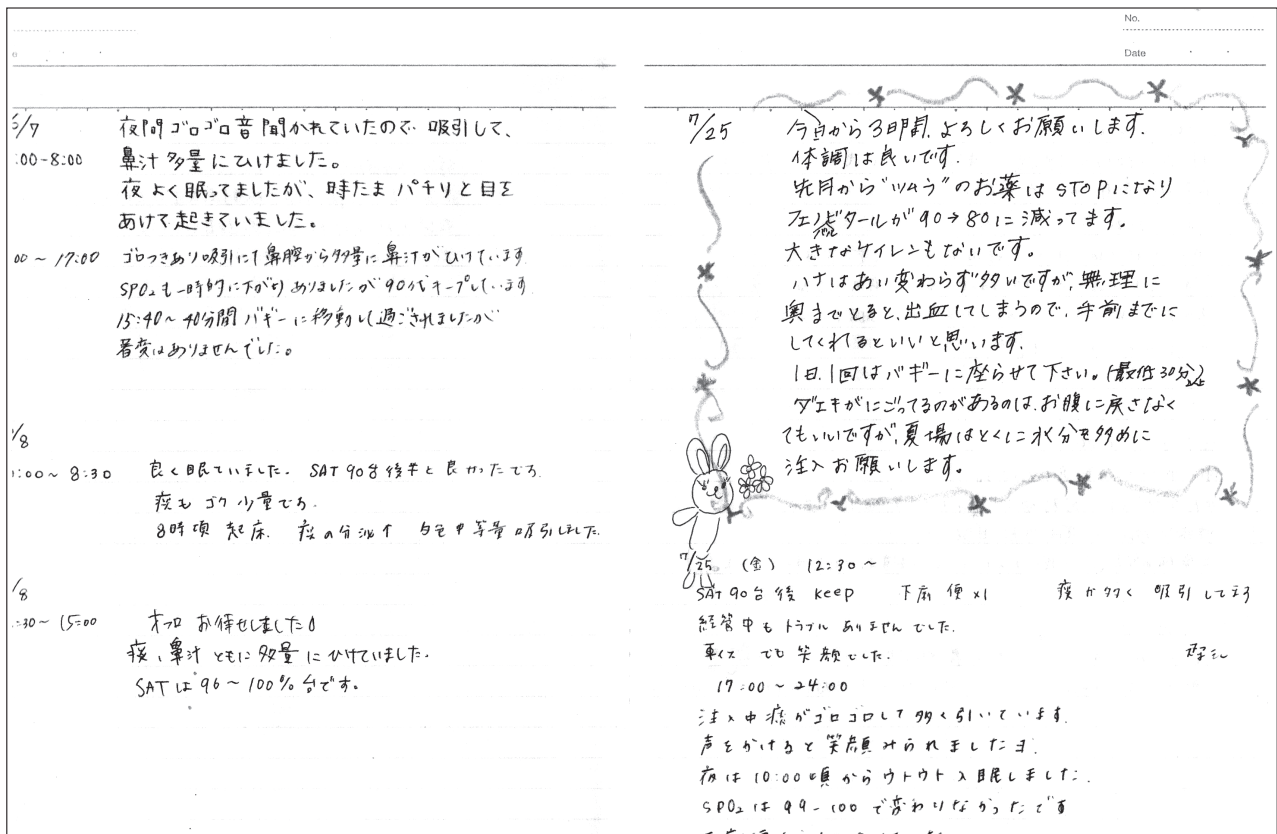 6/7
夜間ゴロゴロ音聞かれていたので吸引して、
:00-8:00
鼻汁多量にひけました。
夜よく眠ってましたが、時たまパチリと目を
あけて起きていました。
00～17:00
ゴロつきあり吸引にて鼻腔から多量に鼻汁がひけています
SPO2も一時的に下がりありましたが90代キープしています
15:40～40分間バギーに移動して過ごされましたが
著変はありませんでした。
/8
:00～8:30
良く眠ていました。SAT 90台後半と良かったです。
痰もゴク少量です。
8時頃 起床. 痰の分泌↑ 白色中等量吸引しました.
/8
:30～15:00
オフロお待せしました
痰、鼻汁ともに多量にひけていました.
SATは96～100%台です。
No.
Date
7/25
今日から3日間、よろしくお願いします.
体調は良いです.
先月から"ツムラ"のお薬はSTOPになり
フェノバタールが90→80に減ってます。
大きなケイレンもないです。
ハナはあい変わらず多いですが、無理に
奥までとると、出血してしまうので、手前までに
してくれるといいと思います.
1日.1回はバギーに座らせて下さい。(最低30分)
ダエキがにごってるのがあるのは、お腹に戻さなく
てもいいですが、夏場はとくに水分を多めに
注入お願いします。
7/25 (金) 12:30～
SAT 90台後 keep 下痢便×1 痰が多く 吸引してます
経管中もトラブルありませんでした.
車イスでも笑顔でした.
17:00～24:00
注入中痰がゴロゴロして多く引いています.
声をかけると笑顔みられましたヨ.
夜は10:00頃からウトウト入眠しました.
SPO2は99-100で変わりなかったです